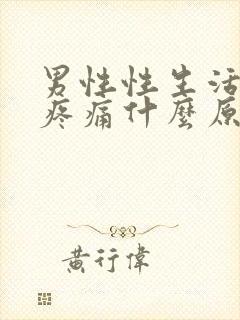 男性性生活
疼痛什麼原
黃行偉